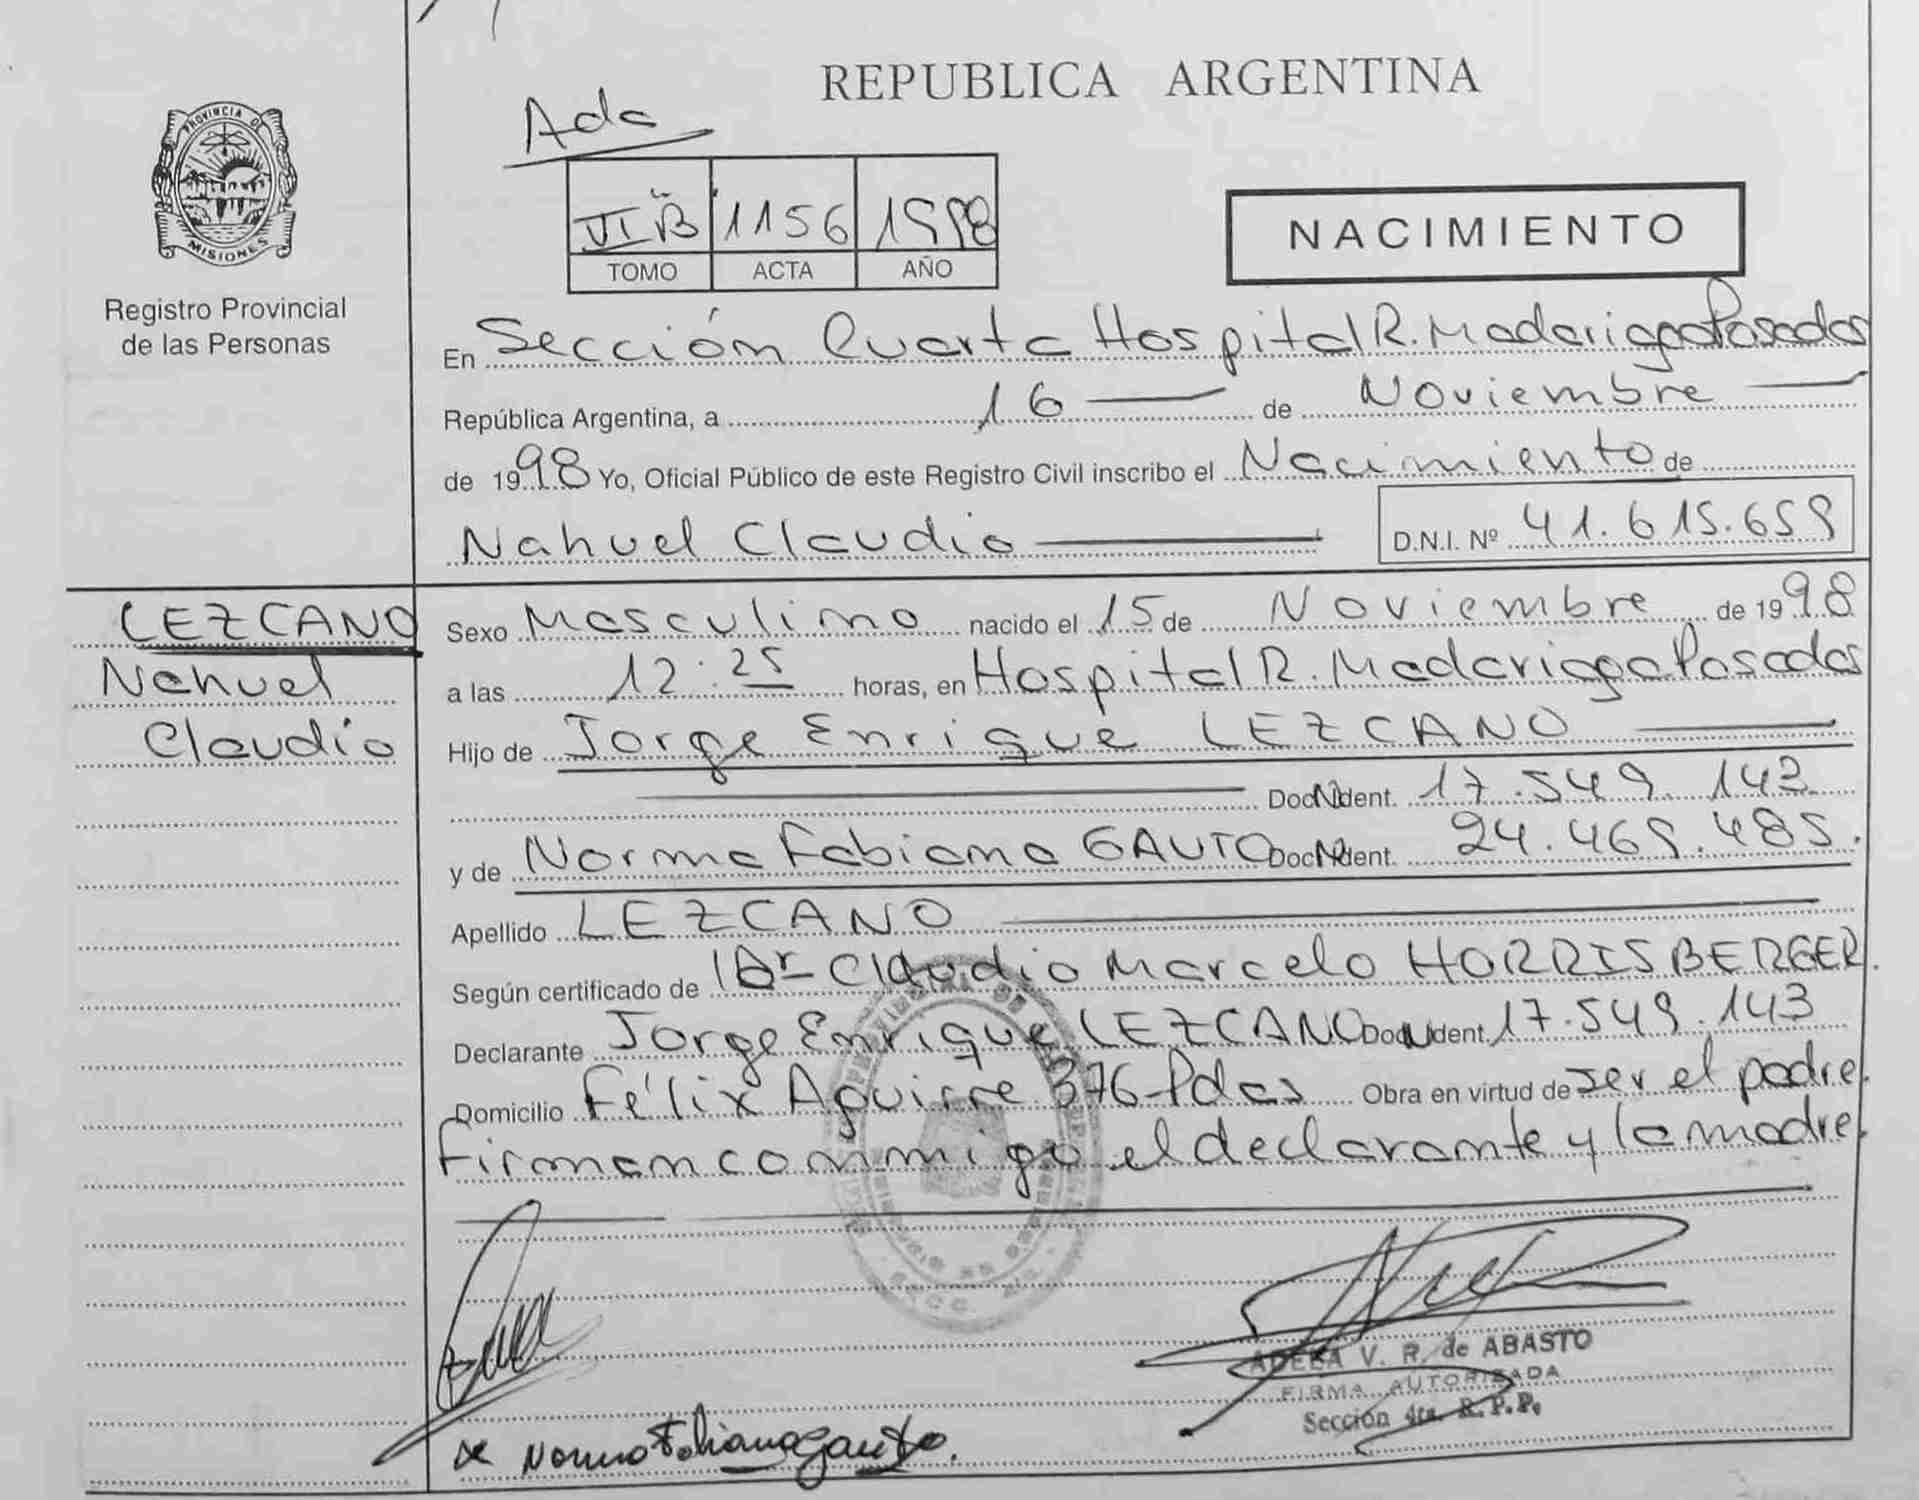 REPUBLICA ARGENTINA
Ada
PROVINCIA DE
MISIONES
VI B̃ 1156 1998
TOMO ACTA AÑO
NACIMIENTO
Registro Provincial
de las Personas
En Sección Cuarta Hospital R. Madariaga Posadas
República Argentina, a 16 de Noviembre
de 1998 Yo, Oficial Público de este Registro Civil inscribo el Nacimiento de
Nahuel Claudio D.N.I. Nº 41.615.659
LEZCANO
Nahuel
Claudio
Sexo Masculino nacido el 15 de Noviembre de 1998
a las 12:25 horas, en Hospital R. Madariaga Posadas
Hijo de Jorge Enrique LEZCANO
Doc N Ident. 17.549.143
y de Norma Fabiana GAUTO Doc N Ident. 24.469.485.
Apellido LEZCANO
Según certificado de Dr Claudio Marcelo HORRISBERGER.
Declarante Jorge Enrique LEZCANO Doc N Ident. 17.549.143
Domicilio Félix Aguirre 376-Pdas Obra en virtud de ser el padre.
Firman conmigo el declarante y la madre.
ADELA V. R. de ABASTO
FIRMA AUTORIZADA
Sección 4ta. R.P.P.
Norma Fabiana Gauto.